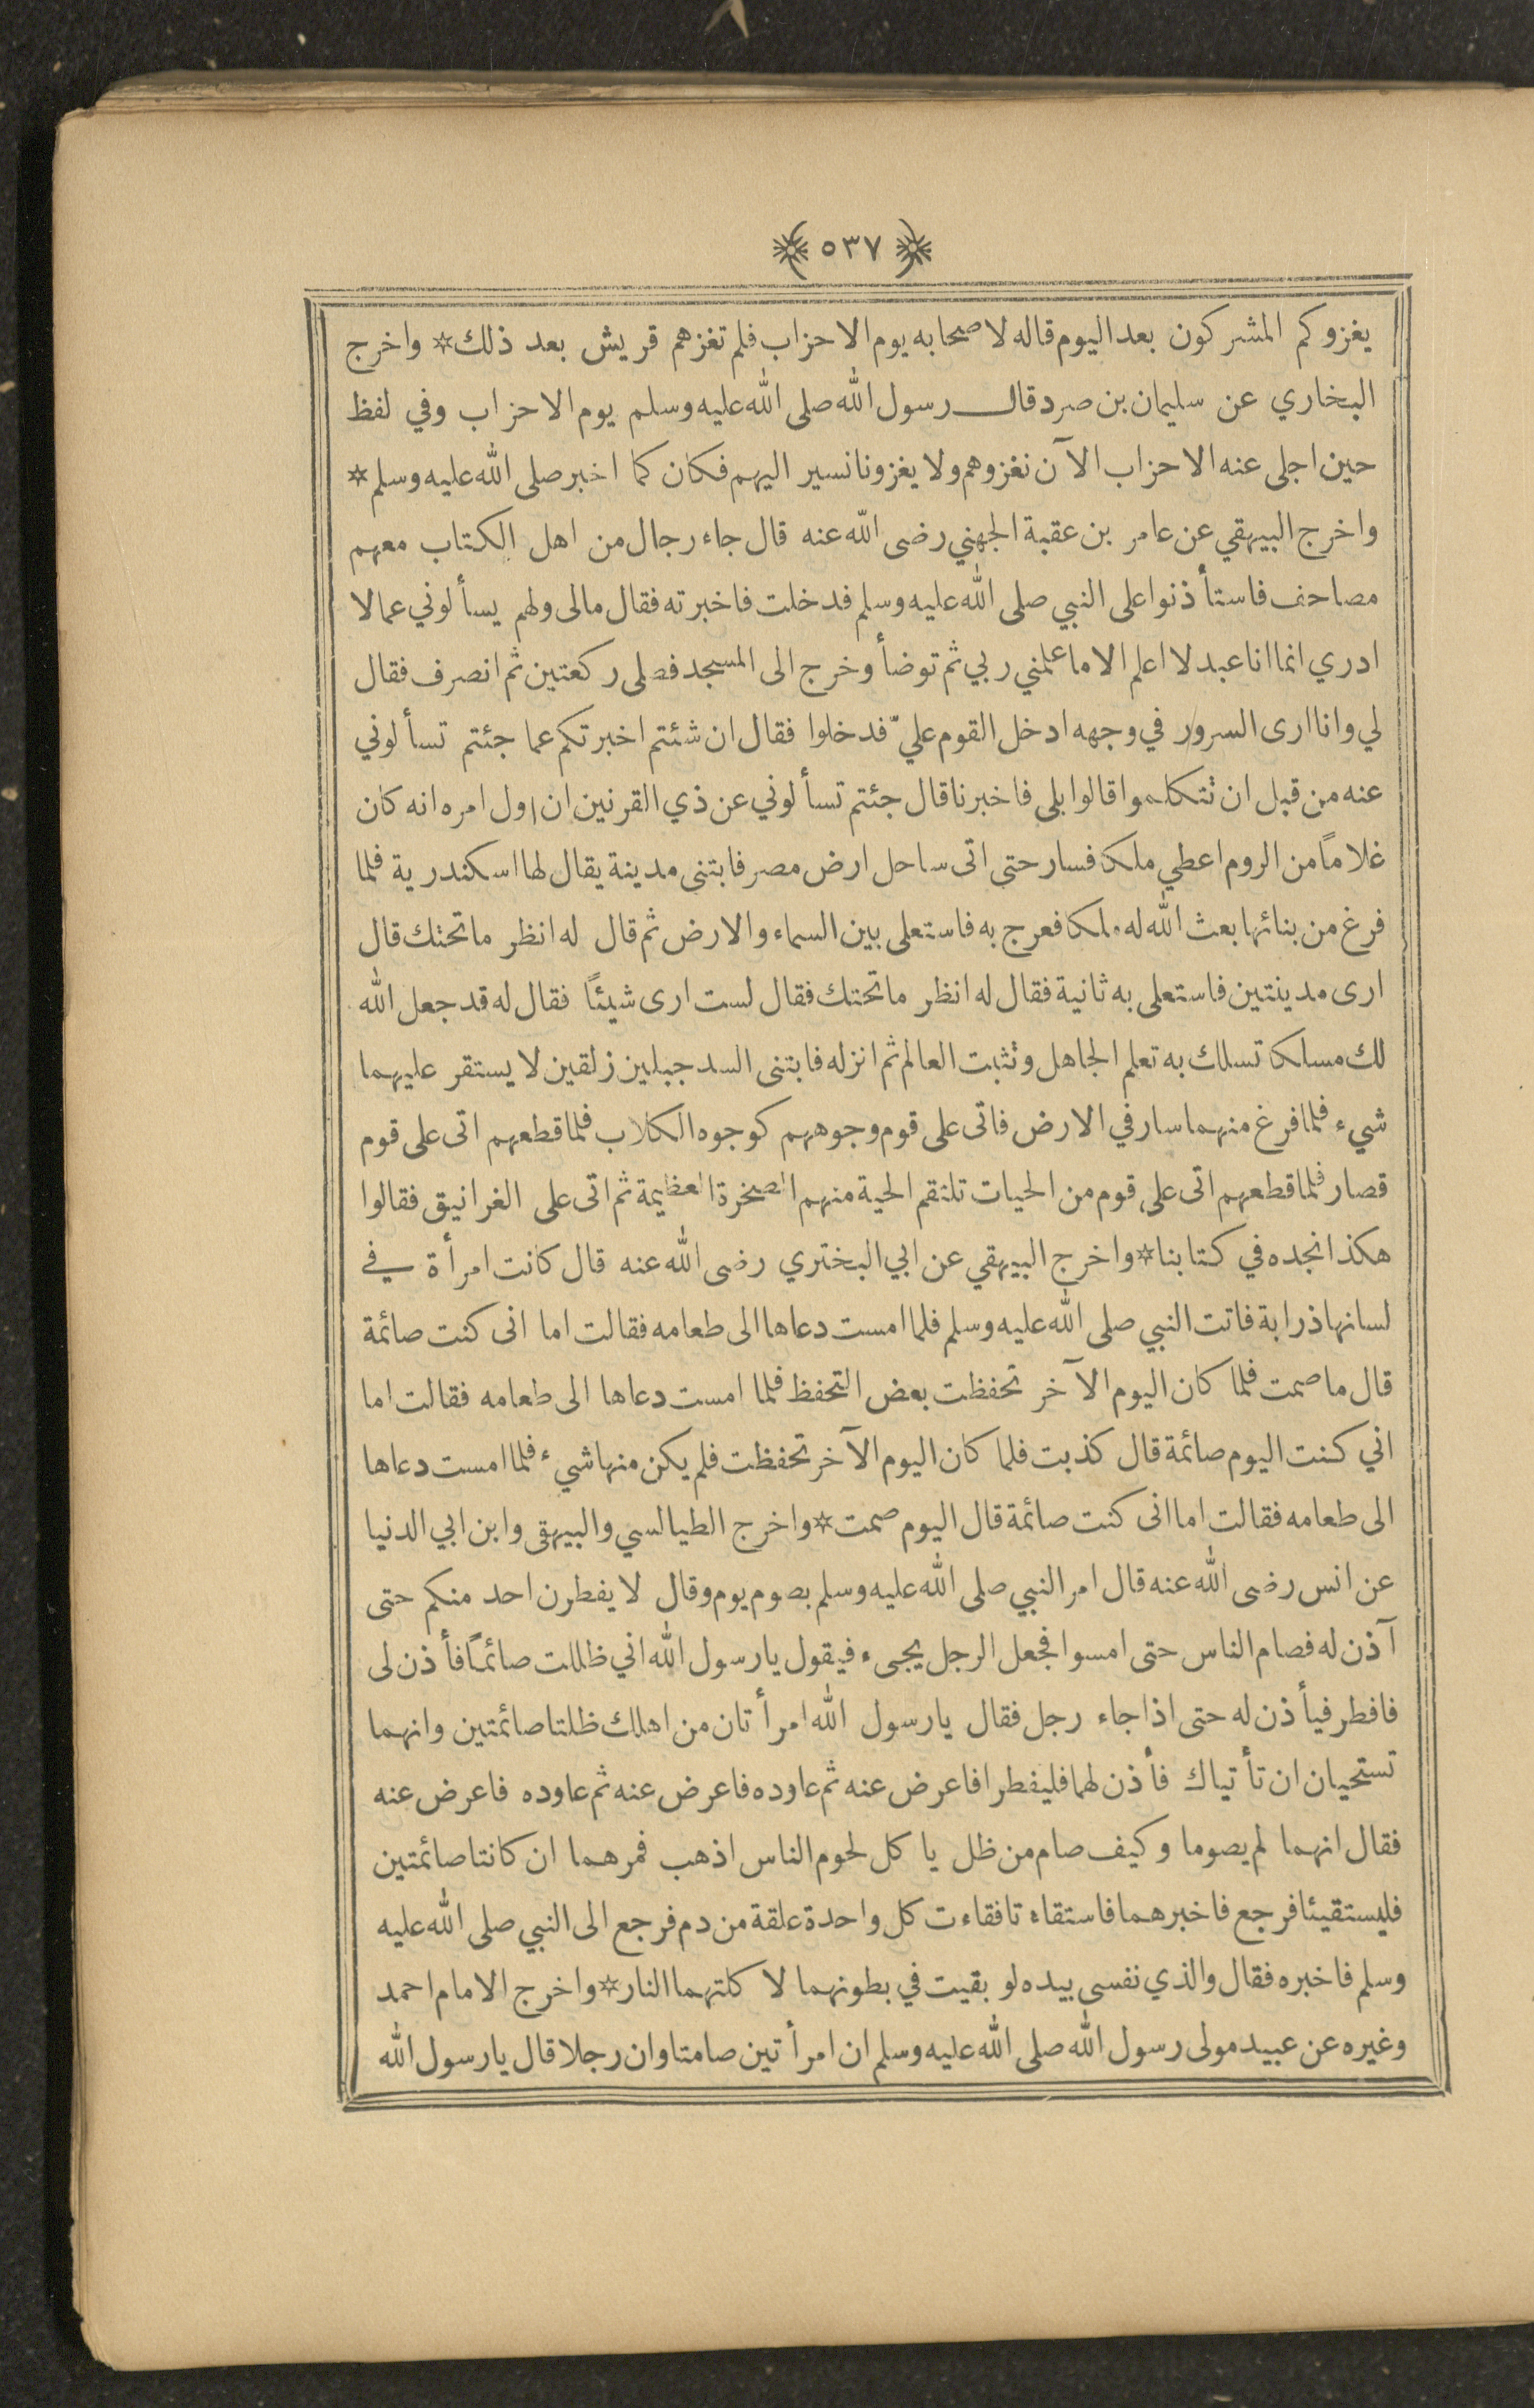 ﴿٥٣٧﴾
يغزوكم المشركون بعد اليوم قاله لاصحابه يوم الاحزاب فلم تغزهم قريش بعد ذلك * واخرج
البخاري عن سليمان بن صرد قال رسول الله صلى الله عليه وسلم يوم الاحزاب وفي لفظ
حين اجلى عنه الاحزاب الآن نغزوهم ولا يغزونا نسير اليهم فكان كما اخبر صلى الله عليه وسلم *
واخرج البيهقي عن عامر بن عقبة الجهني رضى الله عنه قال جاء رجال من اهل الكتاب معهم
مصاحف فاستأذنوا على النبي صلى الله عليه وسلم فدخلت فاخبرته فقال مالى ولهم يسألوني عما لا
ادري انما انا عبد لا اعلم الا ما علمني ربي ثم توضأ وخرج الى المسجد فصلى ركعتين ثم انصرف فقال
لي وانا ارى السرور في وجهه ادخل القوم عليّ فدخلوا فقال ان شئتم اخبرتكم عما جئتم تسألوني
عنه من قبل ان نتكلموا قالوا بلى فاخبرنا قال جئتم تسألوني عن ذي القرنين ان اول امره انه كان
غلاماً من الروم اعطي ملكا فسار حتى اتى ساحل ارض مصر فابتنى مدينة يقال لها اسكندرية فلما
فرغ من بنائها بعث الله له ملكا فعرج به فاستعلى بين السماء والارض ثم قال له انظر ما تحتك قال
ارى مدينتين فاستعلى به ثانية فقال له انظر ما تحتك فقال لست ارى شيئاً فقال له قد جعل الله
لك مسلكا تسلك به تعلم الجاهل ونثبت العالم ثم انزله فابتنى السد جبلين زلقين لا يستقر عليهما
شيء فلما فرغ منهما سار في الارض فاتى على قوم وجوههم كوجوه الكلاب فلما قطعهم اتى على قوم
قصار فلما قطعهم اتى على قوم من الحيات تلتقم الحية منهم الصخرة العظيمة ثم اتى على الغرانيق فقالوا
هكذا نجده في كتابنا * واخرج البيهقي عن ابي البختري رضى الله عنه قال كانت امرأة في
لسانها ذرابة فاتت النبي صلى الله عليه وسلم فلما امست دعاها الى طعامه فقالت اما انى كنت صائمة
قال ما صمت فلما كان اليوم الآخر تحفظت بعض التحفظ فلما امست دعاها الى طعامه فقالت اما
اني كنت اليوم صائمة قال كذبت فلما كان اليوم الآخر تحفظت فلم يكن منها شيء فلما امست دعاها
الى طعامه فقالت اما انى كنت صائمة قال اليوم صمت * واخرج الطيالسي والبيهقى وابن ابي الدنيا
عن انس رضى الله عنه قال امر النبي صلى الله عليه وسلم بصوم يوم وقال لا يفطرن احد منكم حتى
آذن له فصام الناس حتى امسوا فجعل الرجل يجىء فيقول يا رسول الله اني ظللت صائماً فأذن لى
فافطر فيأذن له حتى اذا جاء رجل فقال يا رسول الله امرأتان من اهلك ظلتا صائمتين وانهما
تستحيان ان تأتياك فأذن لهما فليفطرا فاعرض عنه ثم عاوده فاعرض عنه ثم عاوده فاعرض عنه
فقال انهما لم يصوما وكيف صام من ظل ياكل لحوم الناس اذهب فمرهما ان كانتا صائمتين
فليستقيئا فرجع فاخبرهما فاستقاءتا فقاءت كل واحدة علقة من دم فرجع الى النبي صلى الله عليه
وسلم فاخبره فقال والذي نفسى بيده لو بقيت في بطونهما لاكلتهما النار * واخرج الامام احمد
وغيره عن عبيد مولى رسول الله صلى الله عليه وسلم ان امرأتين صامتا وان رجلا قال يا رسول الله